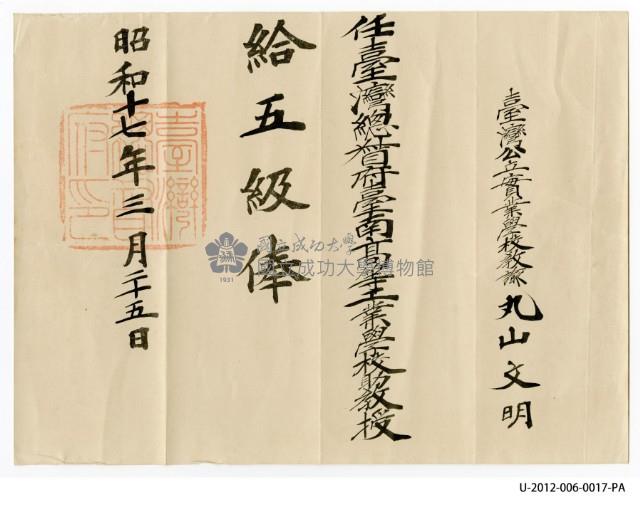 臺灣公立實業學校教諭 丸山文明
任臺灣總督府臺南高等工業學校教授
給五級俸
昭和十七年三月二十五日
臺灣總督府印
國立成功大學
國立成功大學博物館
1931
U-2012-006-0017-PA